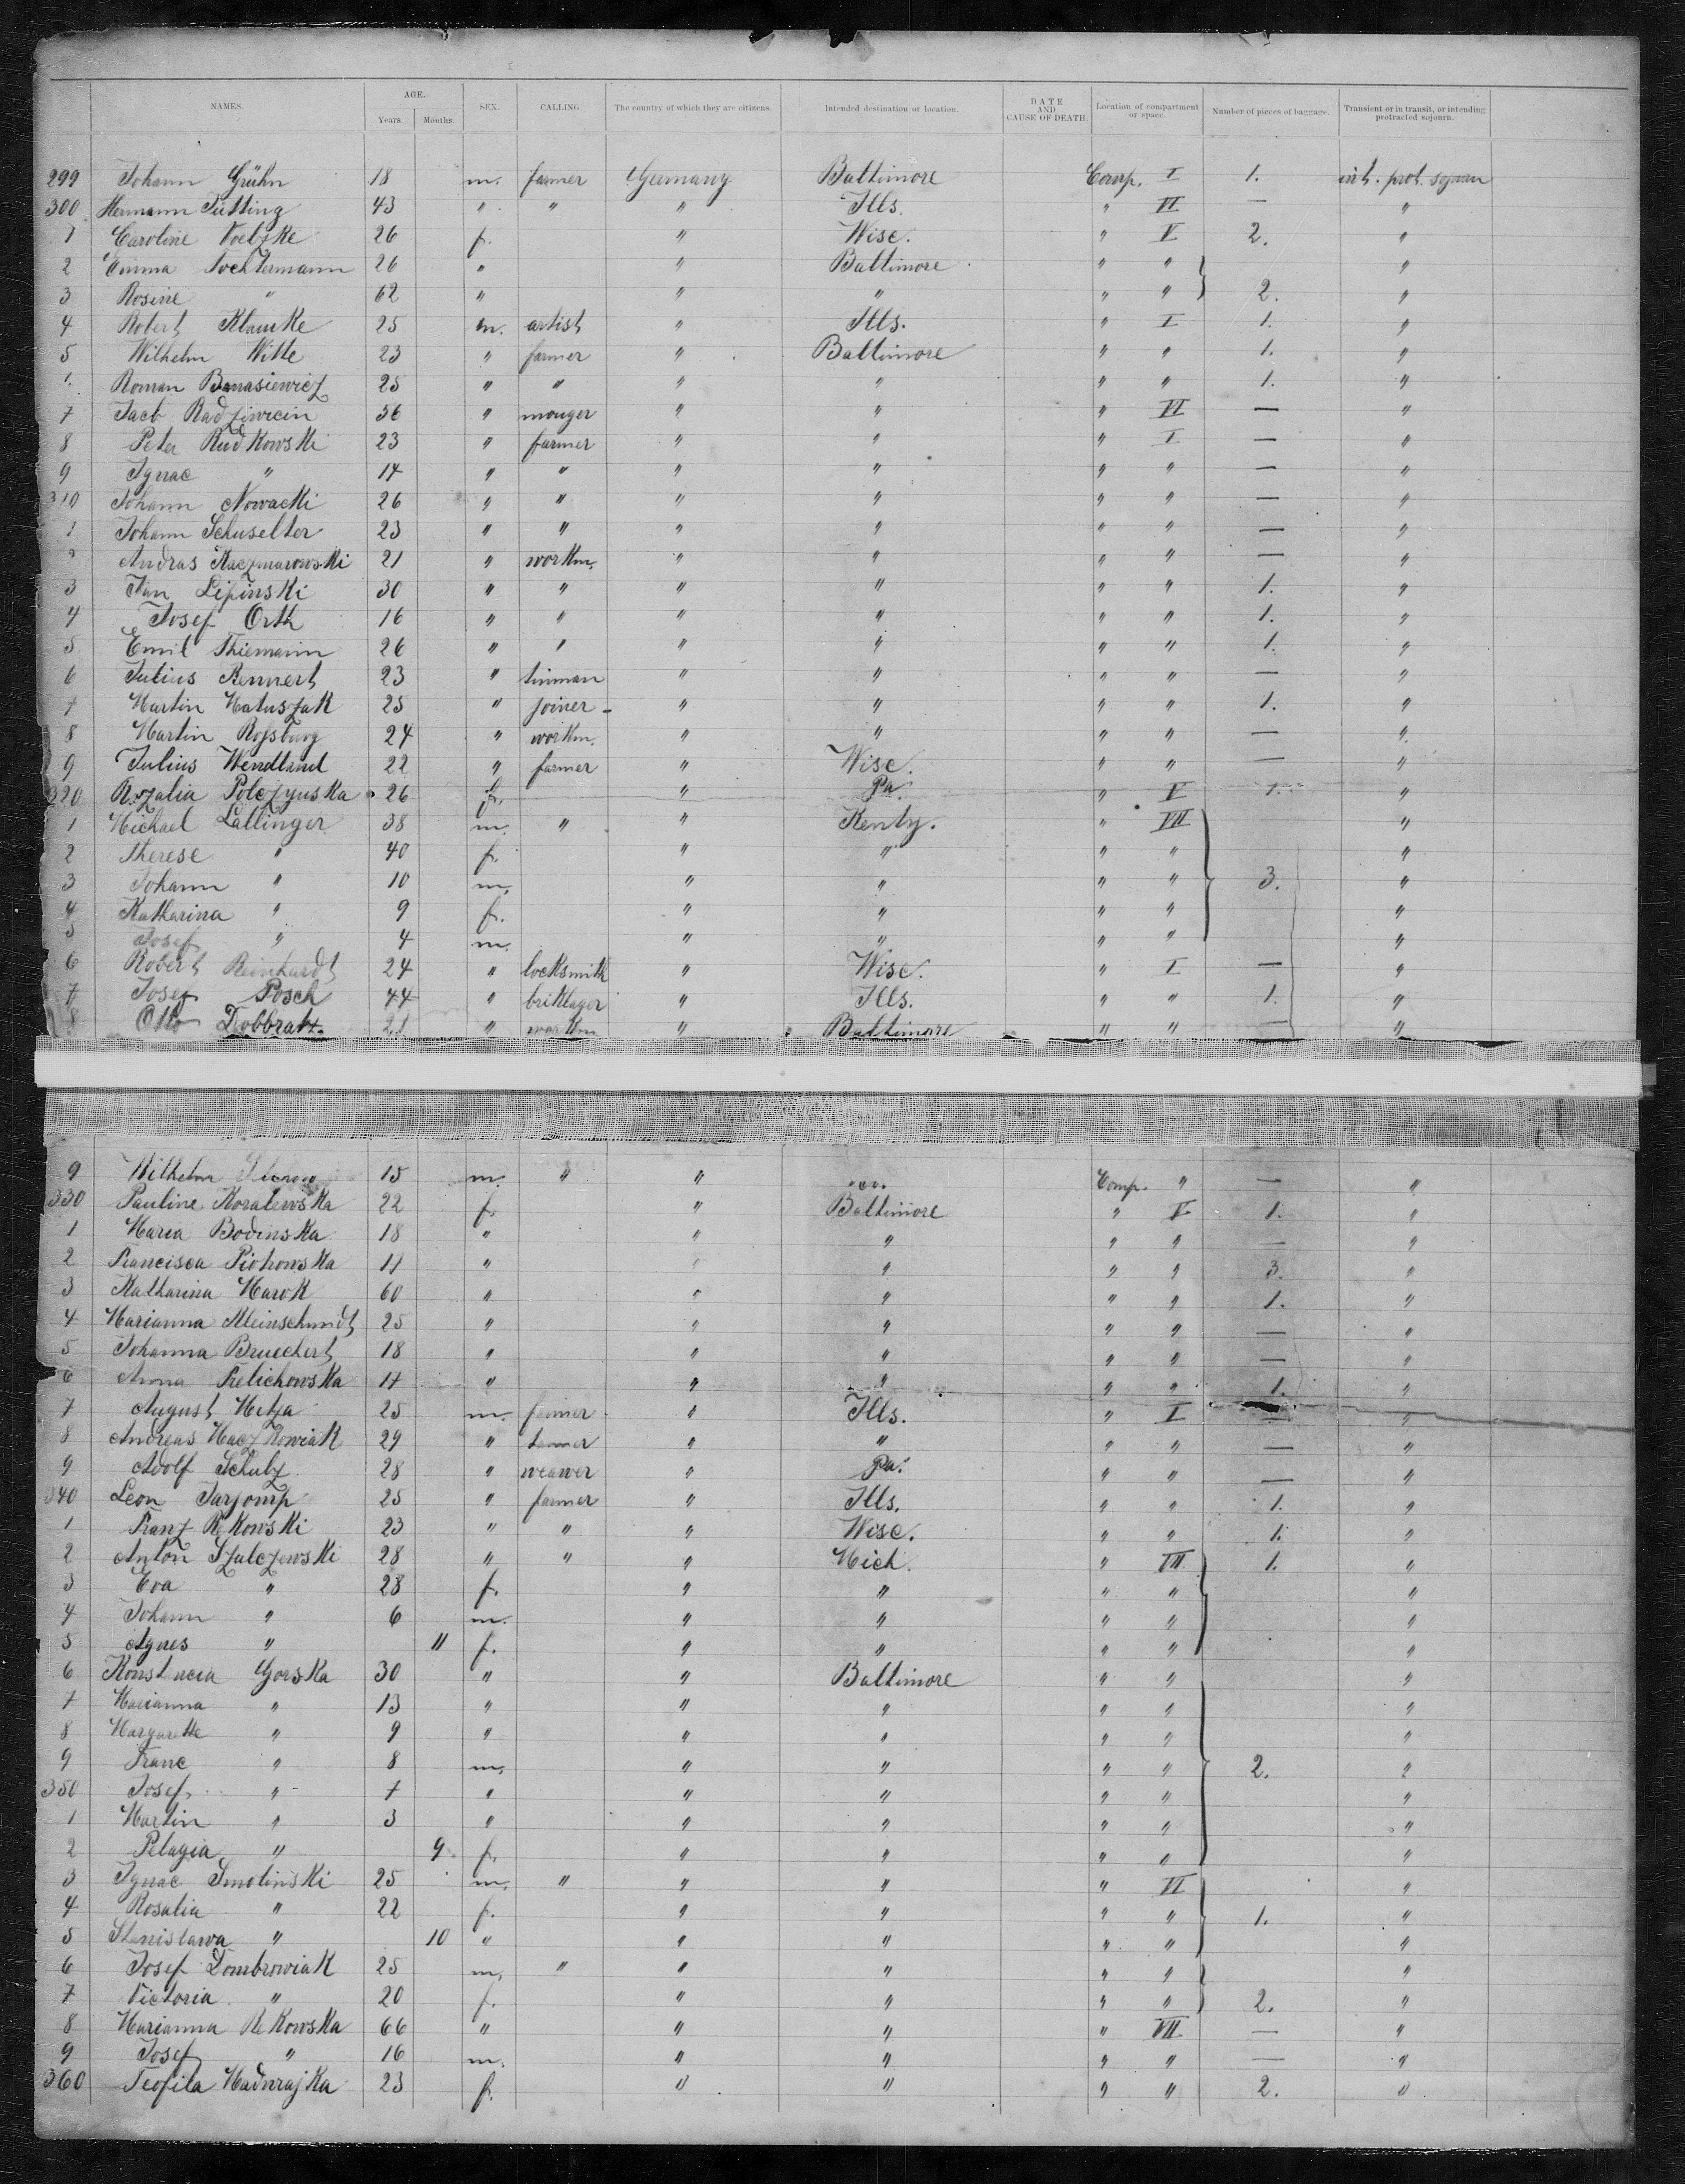 NAMES. AGE. Years. Months. SEX. CALLING The country of which they are citizens. Intended destination or location. DATE AND CAUSE OF DEATH. Location of compartment or space. Number of pieces of baggage. Transient or in transit, or intending protracted sojourn.
299 Johann Grühn 18 m. farmer Germany Baltimore Comp. I 1. int. prot. sojourn
300 Hermann Pütting 43 " " " Ills. " VI — "
1 Caroline Voelzke 26 f. " Wisc. " V 2. "
2 Emma Tochtermann 26 " " Baltimore " " "
3 Rosine " 62 " " " " " 2. "
4 Robert Klamke 25 m. artist " Ills. " I 1. "
5 Wilhelm Witte 23 " farmer " Baltimore " " 1. "
Roman Banasiewicz 25 " " " " " " 1. "
7 Jacb 36 " monger " " " VI — "
8 Peter Rudkowski 23 " farmer " " " I — "
9 Ignac " 14 " " " " " " — "
310 Johann Nowacki 26 " " " " " " — "
1 Johann Schuselter 23 " " " " " " — "
2 Andras Kaczmarowski 21 " workm. " " " " — "
3 Jan Lipinski 30 " " " " " " 1. "
4 Josef Orth 16 " " " " " " 1. "
5 Emil Thiemann 26 " " " " " " 1. "
6 Julius Rennert 23 " tinman " " " " — "
7 Martin Matuszak 25 " joiner " " " " 1. "
8 Martin Rossburg 24 " workm. " " " " — "
9 Julius Wendland 22 " farmer " Wisc. " " — "
320 Rozalia Polczynska 26 f. " Pa. " V 1. "
1 Michael Lallinger 38 m. " " Kenty. " VII "
2 Therese " 40 f. " " " " "
3 Johann " 10 m. " " " " 3. "
4 Katharina " 9 f. " " " " "
5 Josef " 4 m. " " " " "
6 Robert Reinhardt 24 " locksmith " Wisc. " I — "
7 Josef Posch 44 " briklayer " Ills. " " 1. "
8 Otto Dobbratz 21 " workm " Baltimore " " — "
9 Wilhelm 15 m. " " Comp. " — "
330 Pauline Koralewska 22 f. " Baltimore " V 1. "
1 Maria Bodinska 18 " " " " " — "
2 Francisca Piotrowska 11 " " " " " 3. "
3 Katharina Marok 60 " " " " " 1. "
4 Marianna Kleinschmidt 25 " " " " " — "
5 Johanna Bruechert 18 " " " " " — "
6 Anna Trelichowska 17 " " " " " 1. "
7 August Metza 25 m. farmer " Ills. " I — "
8 Andreas Maczkowiak 29 " " " " " — "
9 Adolf Schulz 28 " weawer " Pa. " " — "
340 Leon 25 " farmer " Ills. " " 1. "
1 Franz Rekowski 23 " " " Wisc. " " 1. "
2 Anton Szulczewski 28 " " " Mich. " VII 1. "
3 Eva " 28 f. " " " " "
4 Johann " 6 m. " " " " "
5 Agnes " 11 f. " " " " "
6 Gorska 30 " " Baltimore " " "
7 Marianna " 13 " " " " " "
8 Margarette " 9 " " " " " "
9 Franc " 8 m. " " " " 2. "
350 Josef " 7 " " " " " "
1 Martin " 3 " " " " " "
2 Pelagia " 9 f. " " " " "
3 Ignac Smolinski 25 m. " " " " VI "
4 Rosalia " 22 f. " " " " 1. "
5 Stanislawa " 10 " " " " " "
6 Josef Dombrowiak 25 m. " " " " " "
7 Victoria " 20 f. " " " " 2. "
8 Marianna Rekowska 66 " " " " VII — "
9 Josef " 16 m. " " " " — "
360 Teofila Madurajka 23 f. " " " " 2. "